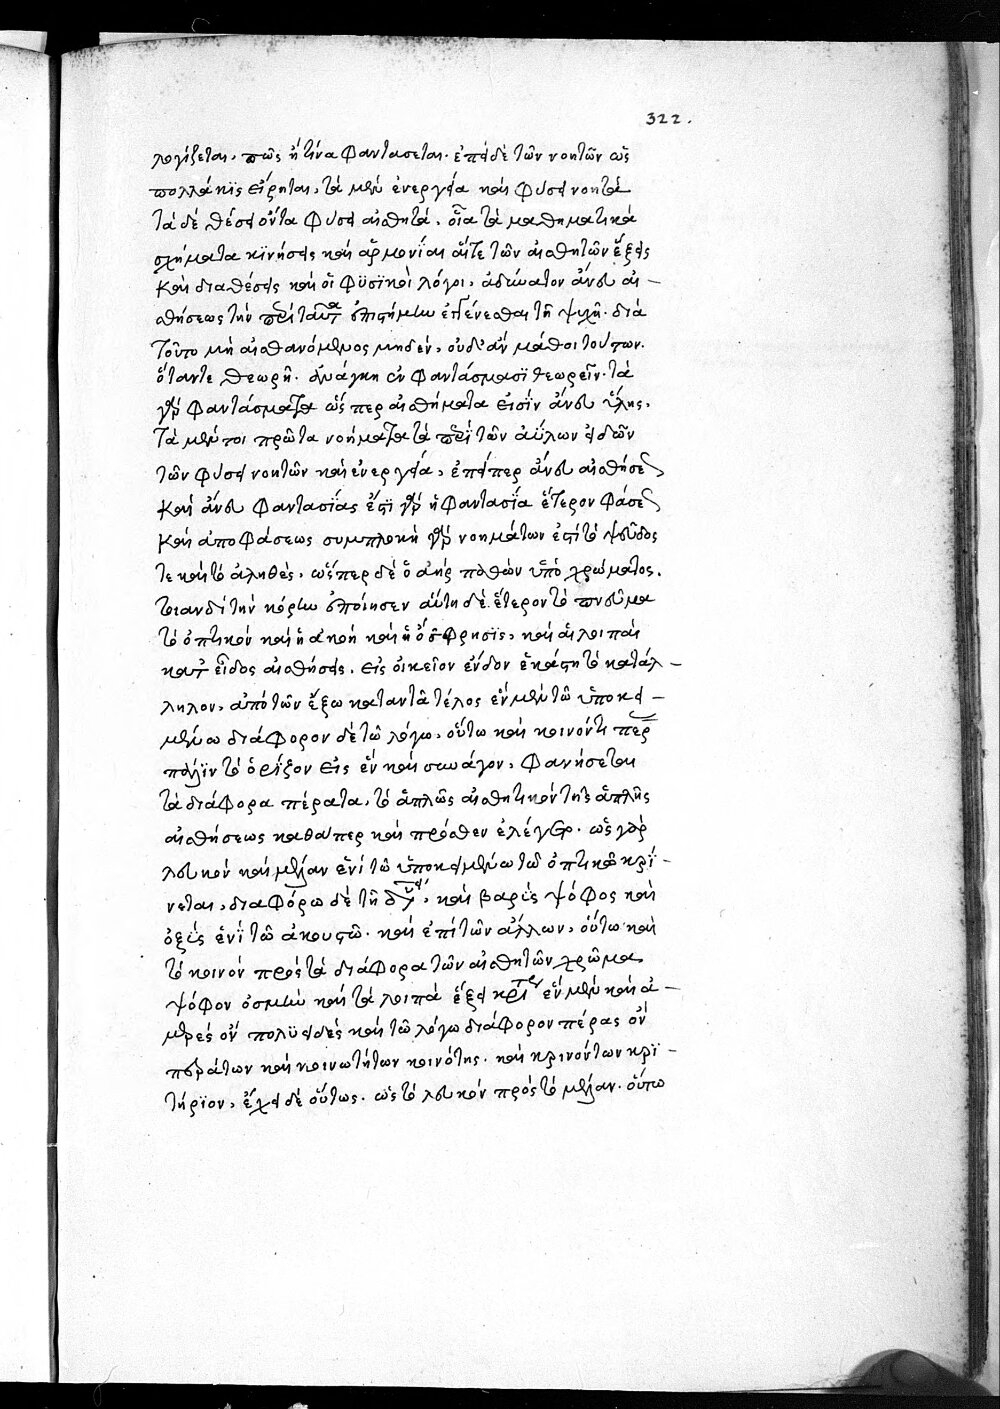 322.
λογίζεται, πῶς ἥ τινα φαντάσεται. ἐπεὶ δὲ τῶν νοητῶν ὡς
πολλάκις εἴρηται, τὰ μὲν ἐνεργείᾳ καὶ φύσει νοητὰ
τὰ δὲ θέσει ὄντα φύσει αἰσθητά. οἷα τὰ μαθηματικὰ
σχήματα κινήσεις καὶ ἁρμονίαι αἵτε τῶν αἰσθητῶν ἕξεις
καὶ διαθέσεις καὶ οἱ φυσικοὶ λόγοι, ἀδύνατον ἄνευ αἰ-
σθήσεως τὴν περὶ ταῦτα ἐπιστήμην ἐγγενέσθαι τῇ ψυχῇ. διὰ
τοῦτο μὴ αἰσθανόμενος μηδὲν, οὐδ' ἂν μάθοι τούτων.
ὅταν τε θεωρῇ. ἀνάγκη ἐν φαντάσμασι θεωρεῖν. τὰ
γὰρ φαντάσματα ὥσπερ αἰσθήματα εἰσὶν ἄνευ ὕλης.
τὰ μέντοι πρῶτα νοήματα τὰ περὶ τῶν ἀΰλων εἰδῶν
τῶν φύσει νοητῶν καὶ ἐνεργείᾳ, ἐπείπερ ἄνευ αἰσθήσεως
καὶ ἄνευ φαντασίας ἔστι γὰρ ἡ φαντασία ἕτερον φάσεως
καὶ ἀποφάσεως συμπλοκὴ γὰρ νοημάτων ἐστὶ τὸ ψεῦδος
τε καὶ τὸ ἀληθὲς, ὥσπερ δὲ ὁ ἀὴρ παθὼν ὑπὸ χρώματος.
τοιανδὶ τὴν κόρην ἐποίησεν αὕτη δὲ ἕτερον τὸ πνεῦμα
τὸ ὀπτικὸν καὶ ἡ ἀκοὴ καὶ ἡ ὄσφρησις, καὶ αἱ λοιπαὶ
κατ' εἶδος αἰσθήσεις. εἰς οἰκεῖον ἔνδον ἑκάστη τὸ κατάλ-
ληλον, ἀπὸ τῶν ἔξω καταντᾶ τέλος ἓν μὲν τῷ ὑποκει-
μένῳ διάφορον δὲ τῷ λόγῳ, οὕτω καὶ κοινόν τι πέρας
πάλιν τὸ ὁρίζον εἰς ἓν καὶ συνάγον, φανήσεται
τὰ διάφορα πέρατα, τὸ ἁπλῶς αἰσθητικὸν τῆς ἁπλῆς
αἰσθήσεως καθάπερ καὶ πρόσθεν ἐλέγετο. ὡς γὰρ
λευκὸν καὶ μέλαν ἑνὶ τῷ ὑποκειμένῳ τῷ ὀπτικῷ κρί-
νεται, διαφόρῳ δὲ τῇ δυνάμει, καὶ βαρὺς ψόφος καὶ
ὀξὺς ἑνὶ τῷ ἀκουστῷ. καὶ ἐπὶ τῶν ἄλλων, οὕτω καὶ
τὸ κοινὸν πρὸς τὰ διάφορα τῶν αἰσθητῶν χρῶμα
ψόφον ὀσμὴν καὶ τὰ λοιπὰ ἕξει ἓν μὲν καὶ ἀ-
μερὲς ὂν πολυειδὲς καὶ τῷ λόγῳ διάφορον πέρας ὂν
περάτων καὶ κοινωτήτων κοινότης. καὶ κρινόντων κρι-
τήριον, ἔχει δὲ οὕτως. ὡς τὸ λευκὸν πρὸς τὸ μέλαν. οὕπω